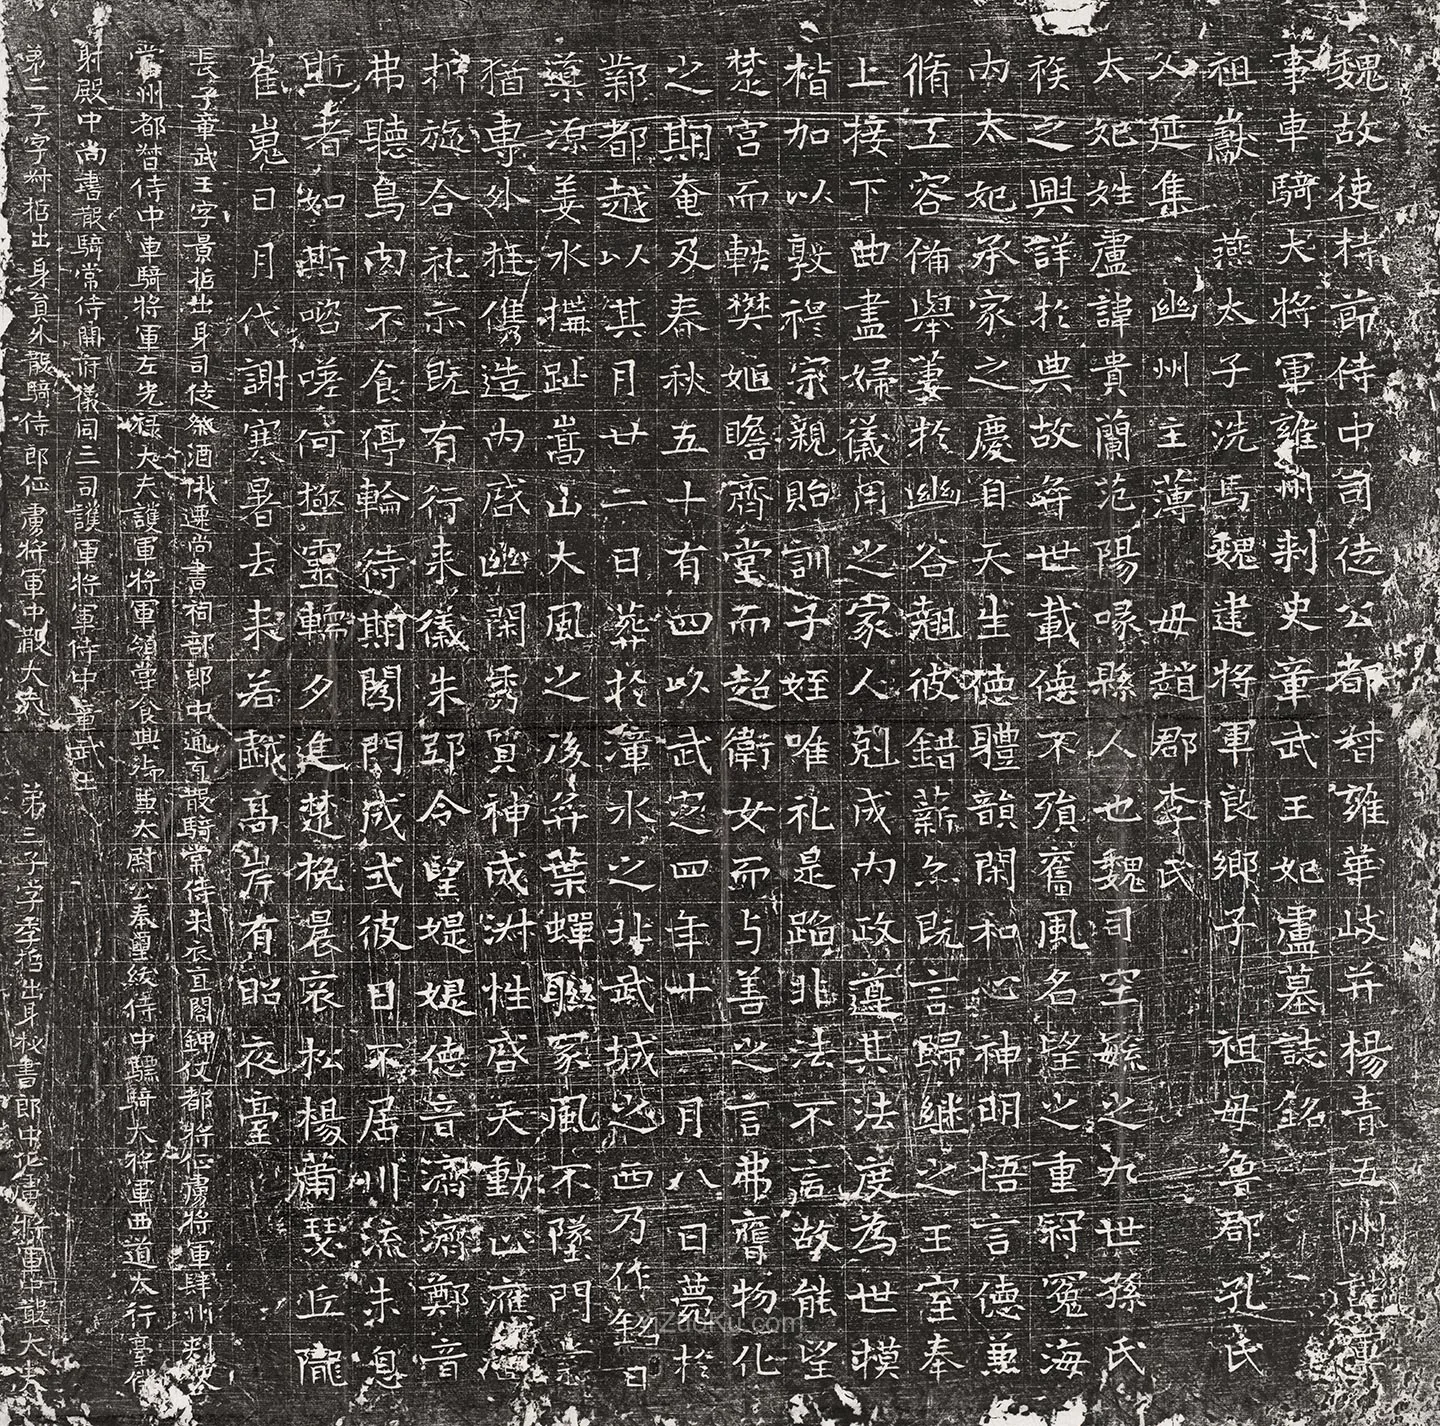 魏故使持節侍中司徒公都督雍華岐并楊青五州諸軍
事車騎大將軍雍州刺史章武王妃盧墓誌銘
祖巘 燕太子洗馬魏建將軍良鄉子 祖母魯郡孔氏
父延集 幽州主薄 母趙郡李氏
太妃姓盧諱貴蘭范陽喙縣人也魏司空毓之九世孫氏
族之興詳於典故弈世載德不殞舊風名望之重冠冕海
內太妃承家之慶自天生德體韻閑和心神明悟言德兼
脩工容備舉蔞於幽谷翹彼錯薪爰既言歸継之王室奉
上接下曲盡婦儀用之家人剋成內政遵其法度為世模
楷加以敦穆宗親貽訓子姪唯礼是蹈非法不言故能望
楚宮而軼樊姬瞻齊堂而超衛女而与善之言弗膺物化
之期奄及春秋五十有四以武定四年十一月八日薨於
鄴都越以其月廿二日葬於漳水之北武城之西乃作銘曰
源姜水搆趾嵩山大風之後弈葉蟬聯冢風不墜門
猶專外雄儁造內启幽閑秀質神成淋性启天動止應
折旋合礼亦既有行来儀朱邸令望媞媞德音濟濟鄭音
弗聽鳥肉不食停輪待期闔門成式彼日不居川流未息
逝者如斯嗞嗟何極靈轜夕進楚挽晨哀松楊蕭瑟丘隴
崔嵬日月代謝寒暑去来若高岸有昭夜臺
長子章武王字景哲出身司徒祭酒俄遷尚書祠部郎中通直散騎常侍朱衣直閤鉀仗都將征虜將軍肆州刺史
當州都督侍中車騎將軍左光祿大夫護軍將軍領嘗食典御兼太尉公奉璽綬侍中驃騎大將軍西道大行臺僕
射殿中尚書散騎常侍開府儀同三司護軍將軍侍中章武王
第二子字叔哲出身員外散騎侍郎征虜將軍中散大夫 第三子字季哲出身秘書郎中征虜將軍中散大夫